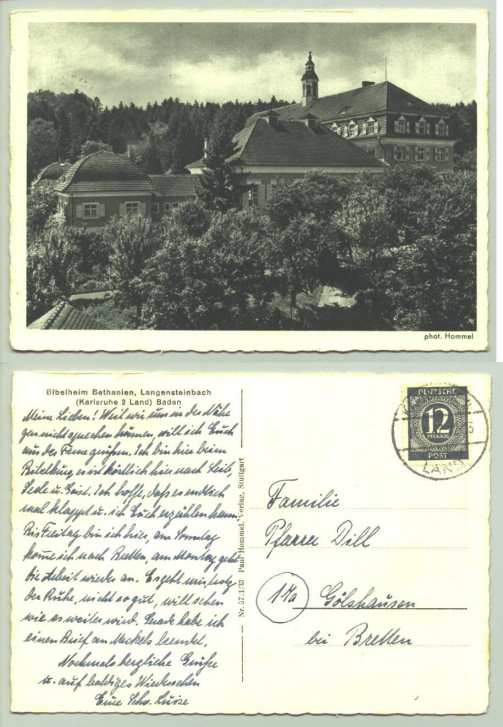 phot. Hommel
Bibelheim Bethanien, Langensteinbach
(Karlsruhe 2 Land) Baden
Meine Lieben! Weil wir uns in der Nähe
gar nicht sprechen können, will ich Euch
aus der Ferne grüßen. Ich bin hier beim
Bibelkurs, es ist köstlich hier nach Leib,
Seele u. Geist. Ich hoffe, daß es endlich
mal klappt u. ich Euch erzählen kann.
Bis Freitag bin ich hier, am Sonntag
komme ich nach Bretten, am Montag geht
die Arbeit wieder an. Es geht mir, trotz
der Ruhe, nicht so gut, will sehen
wie es weiter wird. Gerade habe ich
einen Brief an beendet.
Nochmals herzliche Grüße
u. auf baldiges Wiedersehen
Eure Schw. Luise
Nr. 57.1/33 Paul Hommel, Verlag, Stuttgart
DEUTSCHE
12
PFENNIG
POST
LAND
Familie
Pfarrer Dill
(17a) Gölshausen
bei Bretten